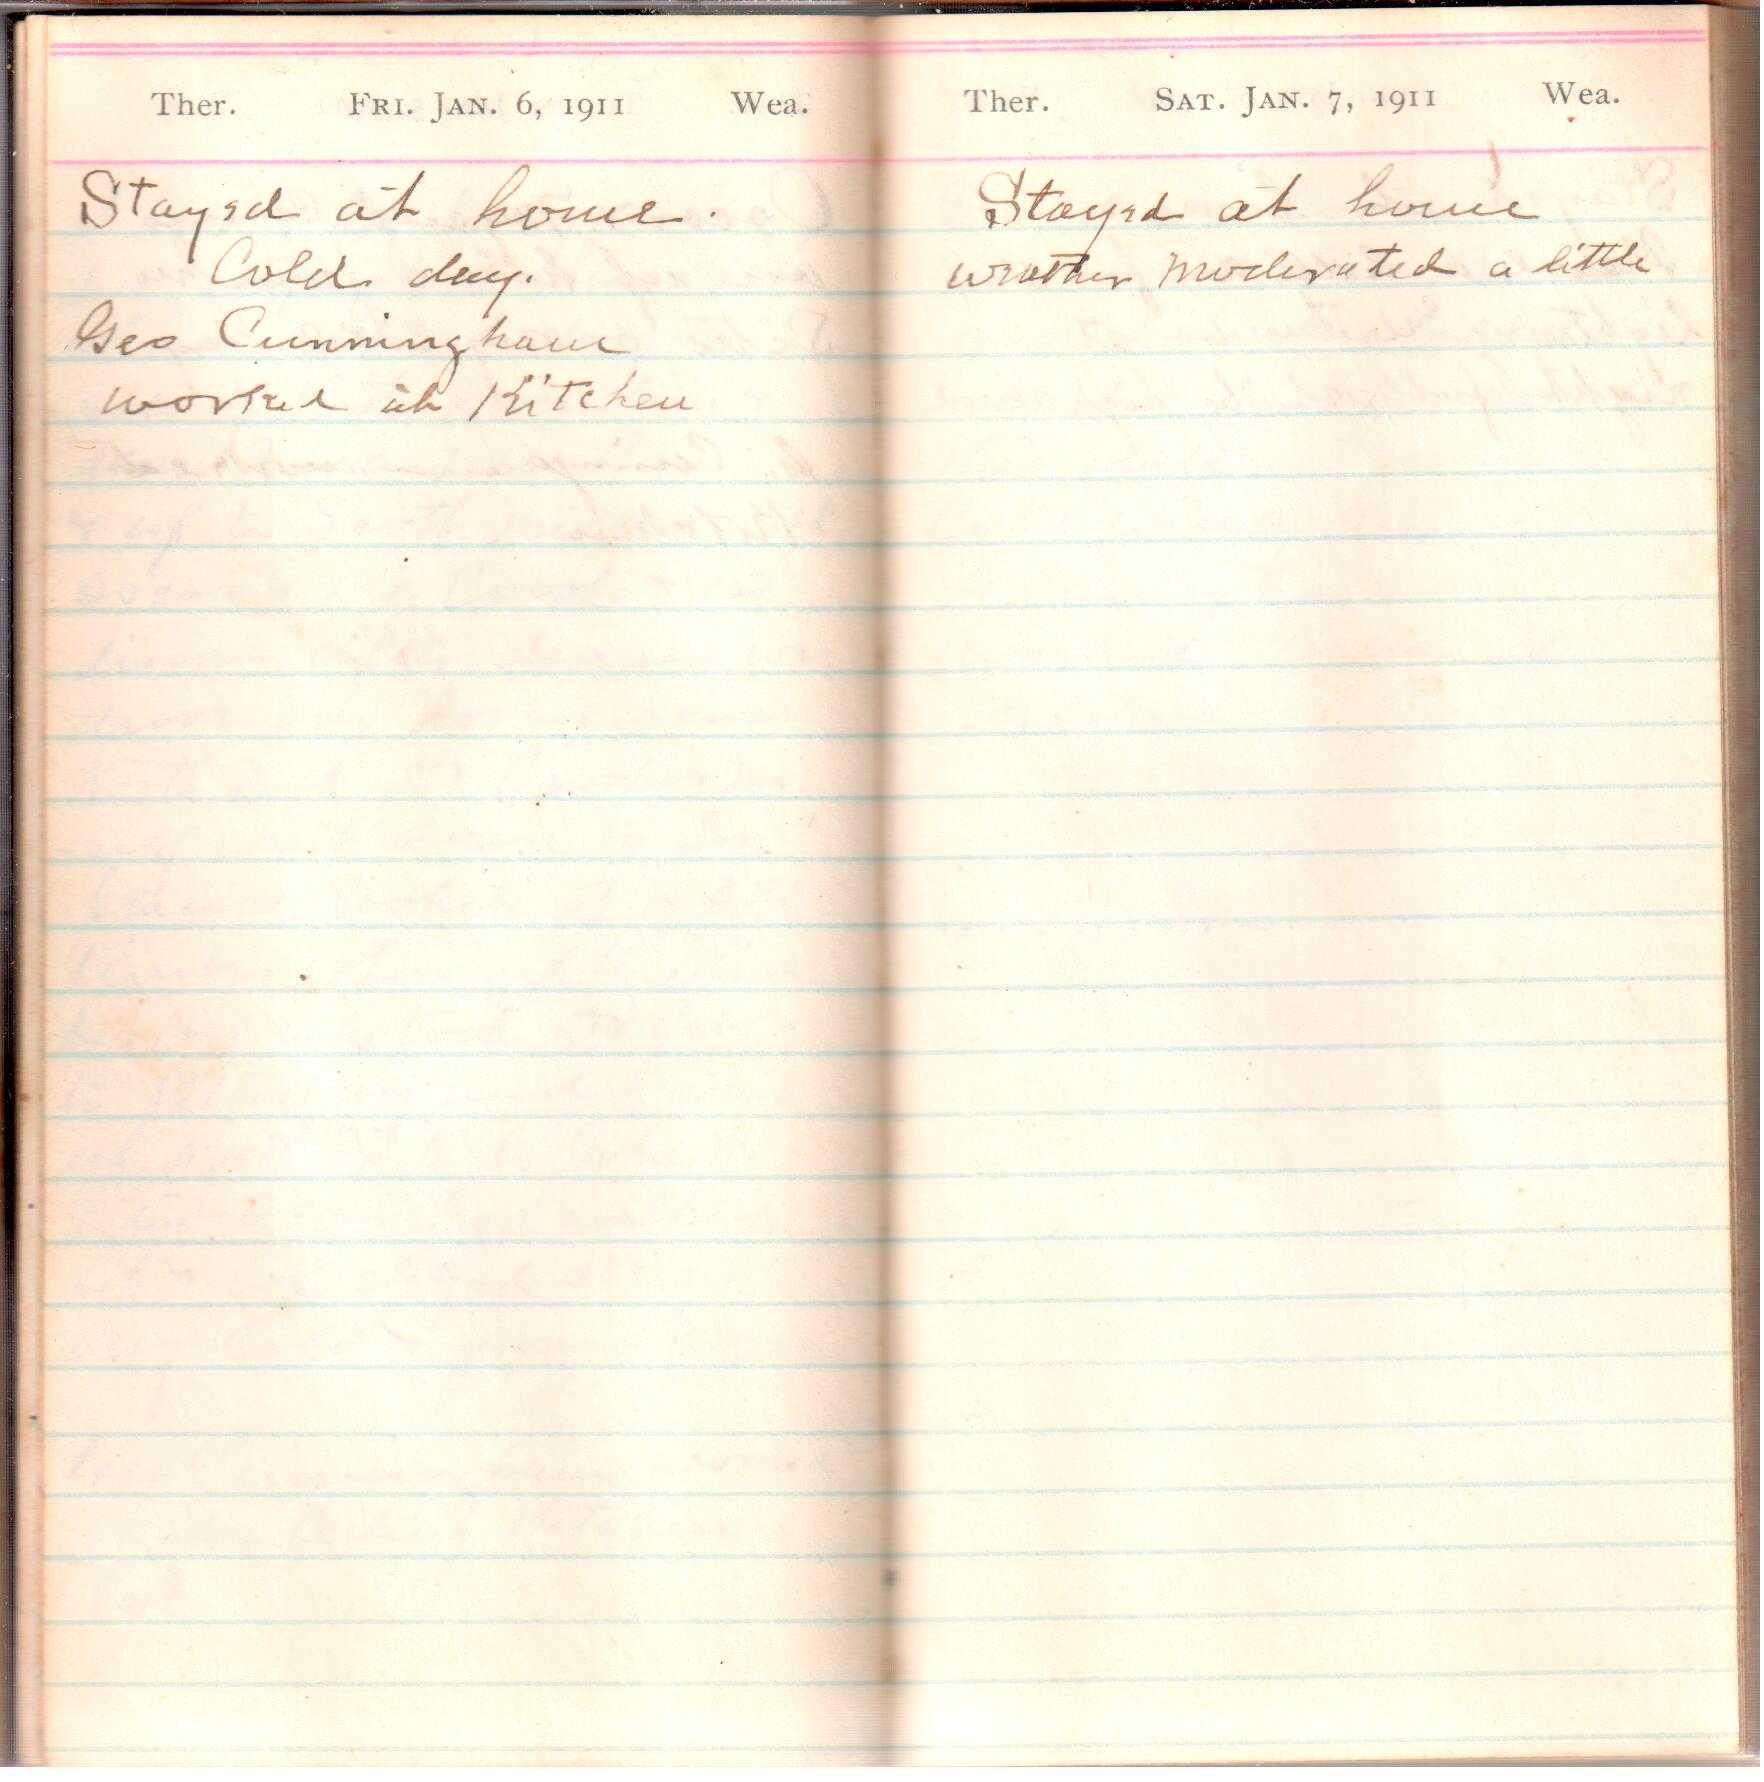 Ther. FRI. JAN. 6, 1911 Wea.
Stayed at home.
Cold day.
Geo Cunningham
worked at Kitchen
Ther. SAT. JAN. 7, 1911 Wea.
Stayed at home
weather moderated a little